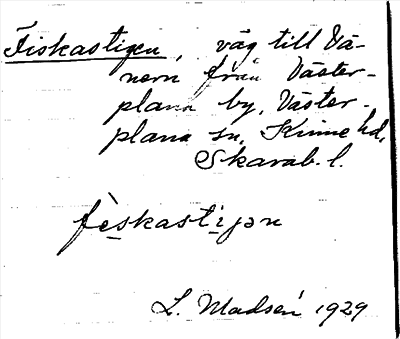 Fiskastigen, väg till Vä-
nern från Väster-
plana by, Väster-
plana sn, Kinne hd,
Skarab. l.
fèskastiɡən
L. Madsén 1929